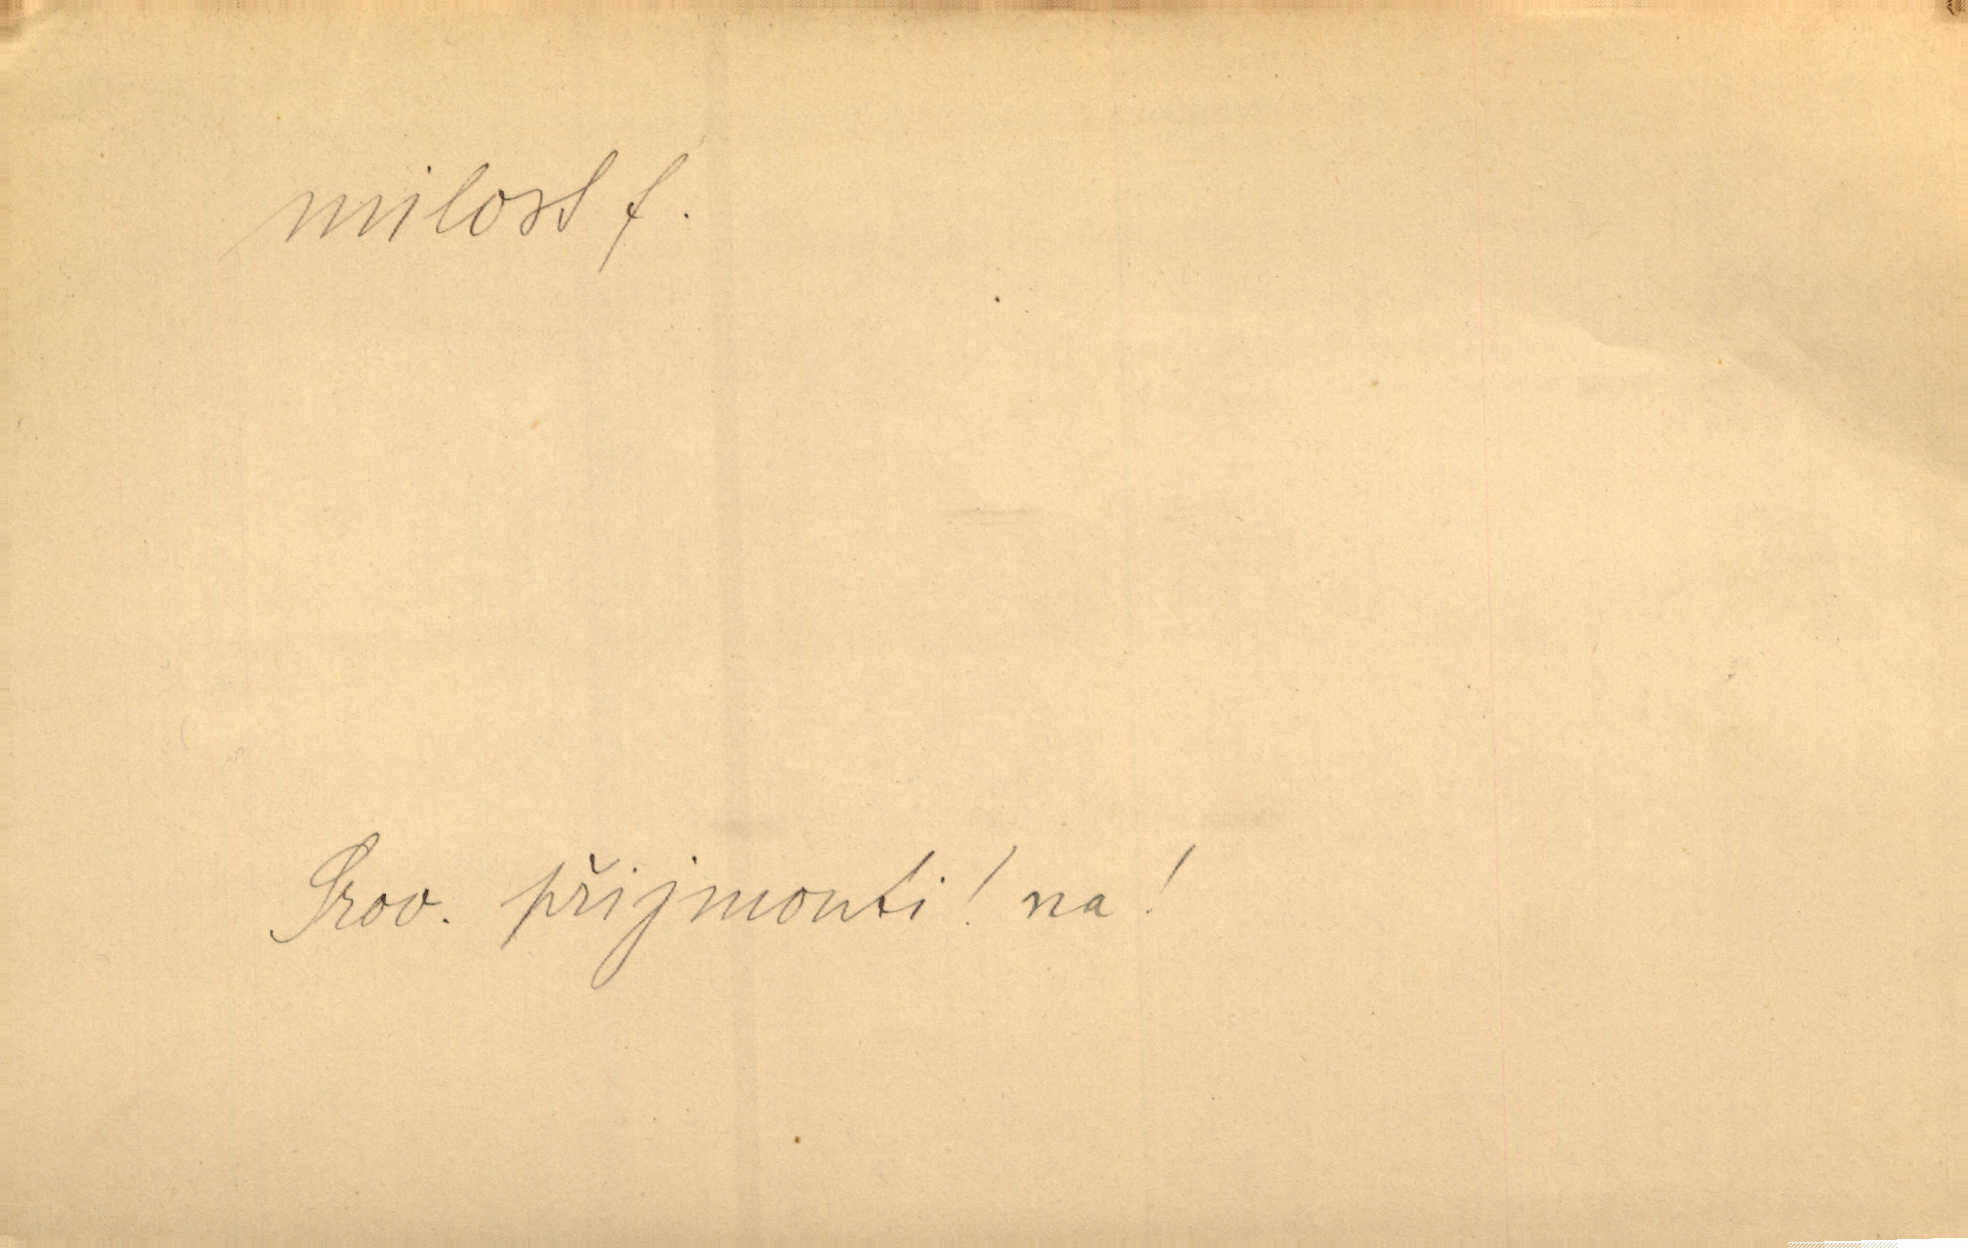 milost f.
Srov. přijmouti! na!